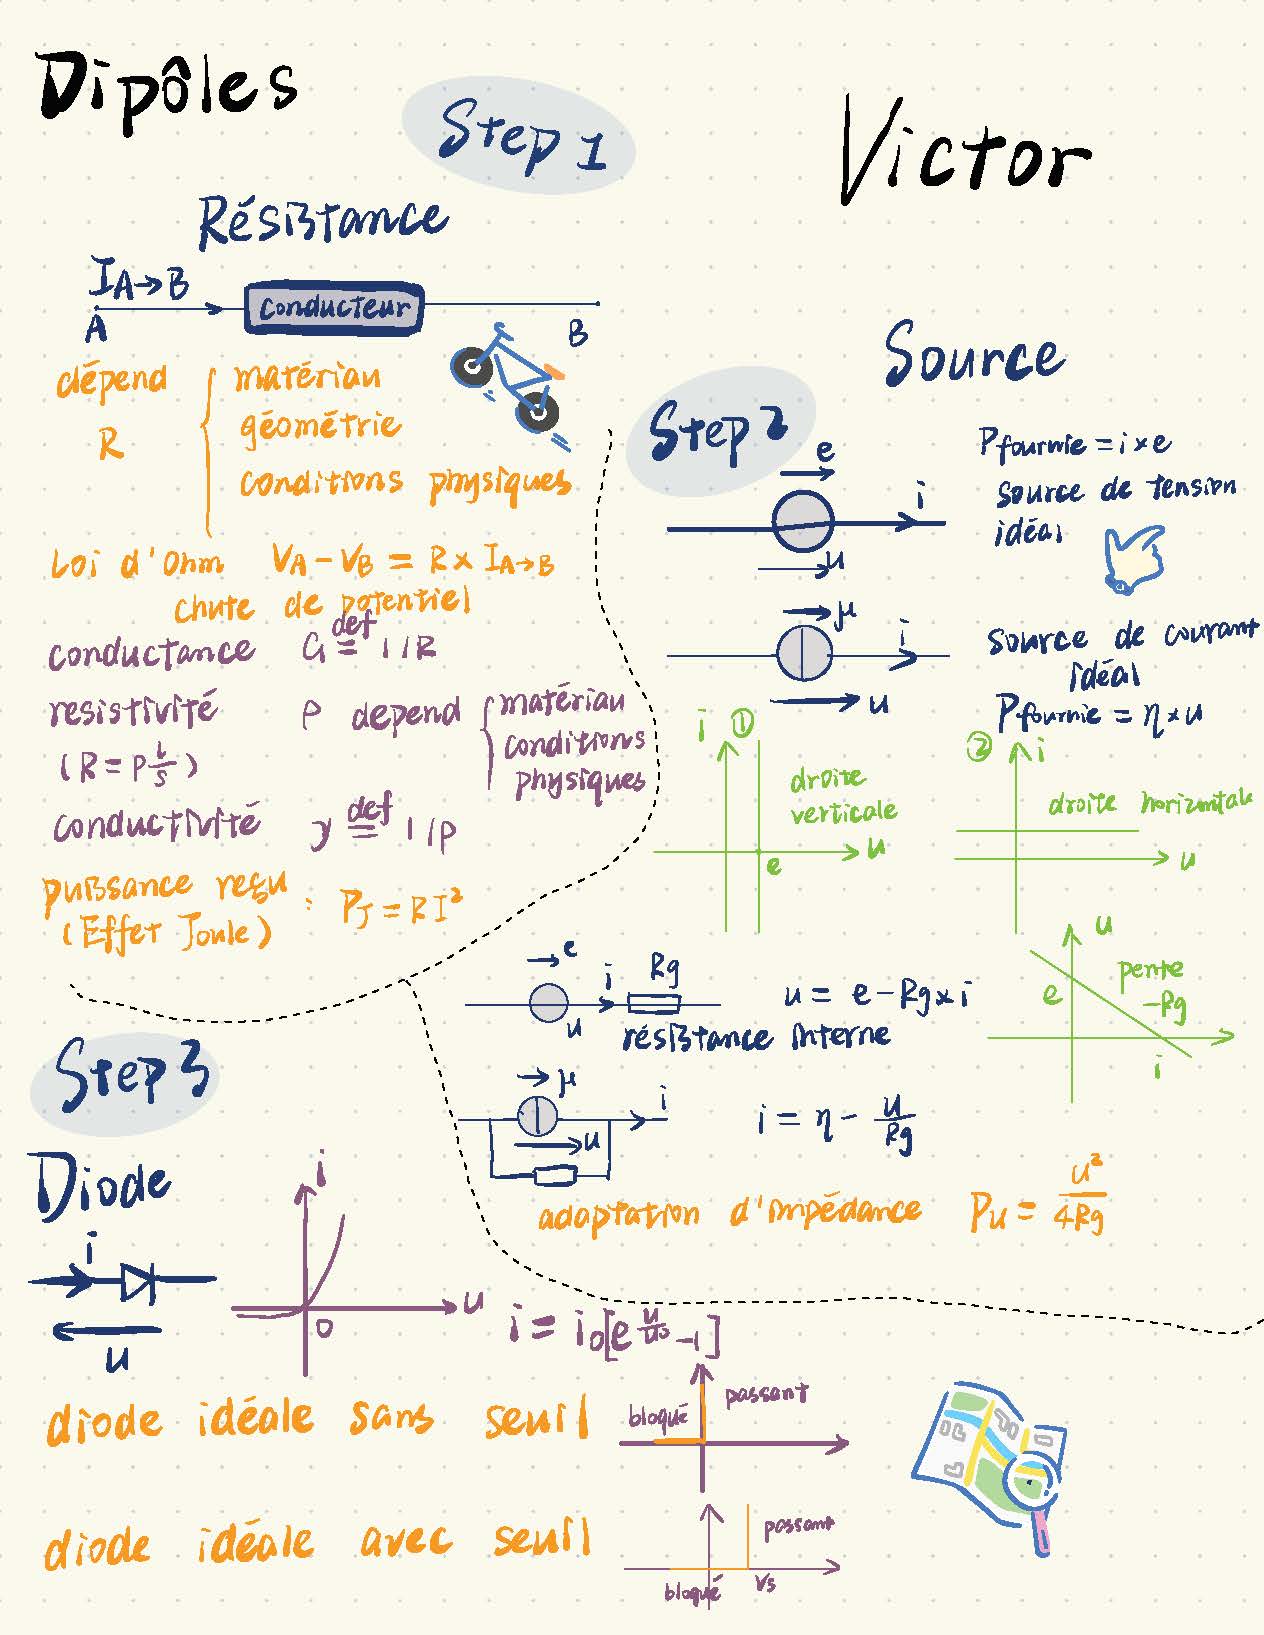 Dipôles
Victor
Step 1
Résistance
I A→B
conducteur
A
B
dépend
R
matériau
géométrie
conditions physiques
Loi d'Ohm VA - VB = R × IA→B
chute de potentiel
conductance G def= 1/R
resistivité ρ depend
matériau
conditions
physiques
(R = ρ L/S)
conductivité γ def= 1/ρ
puissance reçu : PJ = RI²
(Effet Joule)
Source
Step 2
e
i
u
Pfournie = i × e
source de tension
idéal
μ
i
u
source de courant
idéal
Pfournie = η × u
i ①
droite
verticale
u
e
② i
droite horizontale
u
e
i
Rg
u
u = e - Rg × i
résistance interne
u
e
pente
-Rg
i
μ
i
u
i = η - u/Rg
adaptation d'impédance Pu = u²/4Rg
Step 3
Diode
i
u
i
u
0
i = i0[e u/u0 -1]
diode idéale sans seuil
bloqué
passant
diode idéale avec seuil
passant
bloqué
Vs